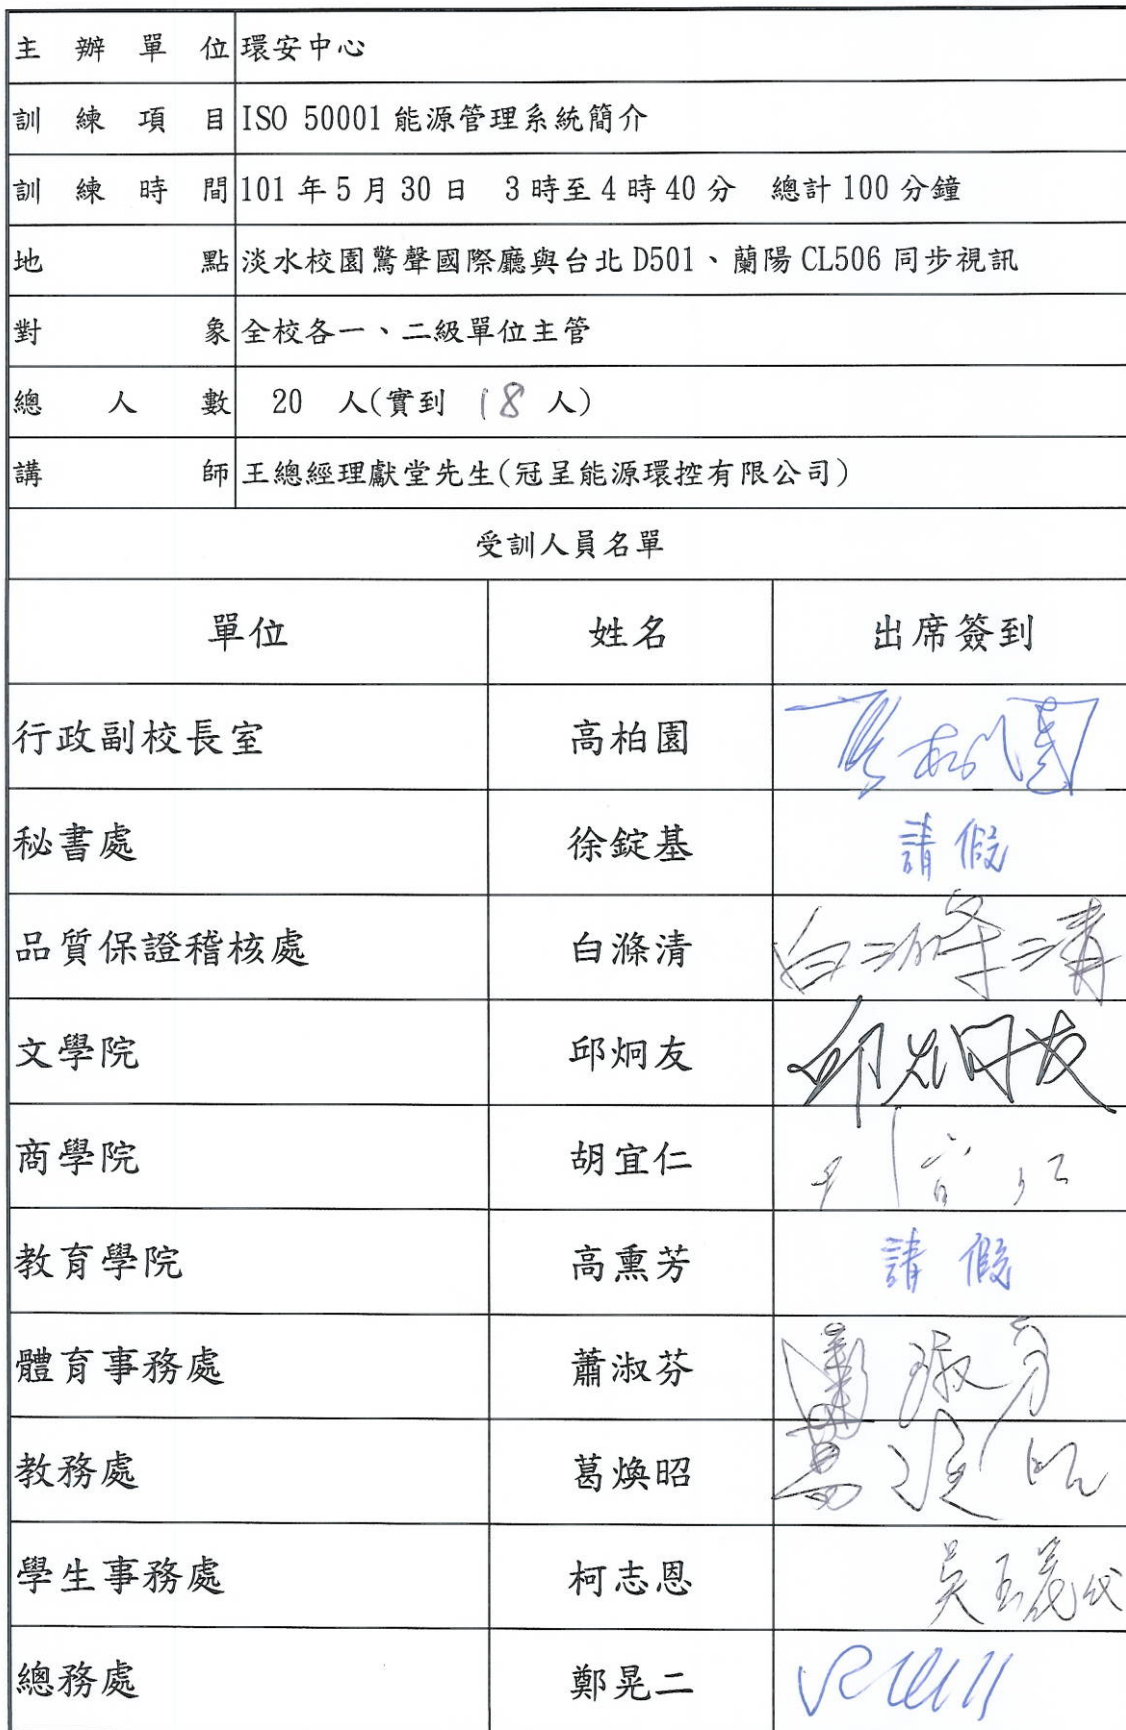 主辦單位 環安中心
訓練項目 ISO 50001 能源管理系統簡介
訓練時間 101 年 5 月 30 日 3 時至 4 時 40 分 總計 100 分鐘
地點 淡水校園驚聲國際廳與台北 D501、蘭陽 CL506 同步視訊
對象 全校各一、二級單位主管
總人數 20 人(實到 18 人)
講師 王總經理獻堂先生(冠呈能源環控有限公司)
受訓人員名單
單位 姓名 出席簽到
行政副校長室 高柏園 高柏園
秘書處 徐錠基 請假
品質保證稽核處 白滌清 白滌清
文學院 邱炯友 邱炯友
商學院 胡宜仁 胡宜仁
教育學院 高熏芳 請假
體育事務處 蕭淑芬 蕭淑芬
教務處 葛煥昭 葛煥昭
學生事務處 柯志恩
總務處 鄭晃二